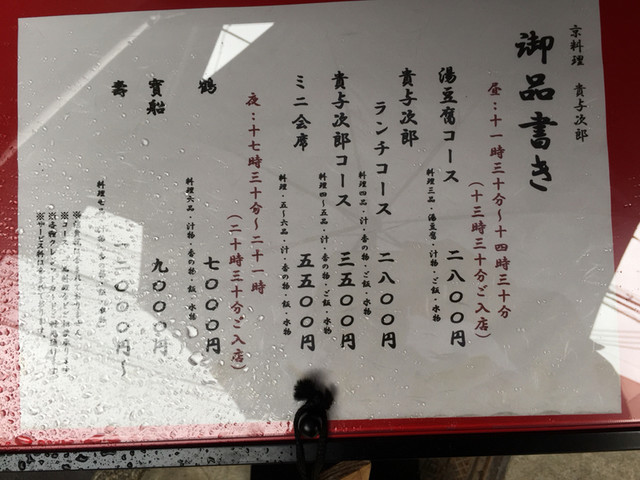 京料理 貴与次郎
御品書き
昼：十一時三十分～十四時三十分
（十三時三十分ご入店）
湯豆腐コース 二八〇〇円
料理三品・湯豆腐・汁物・ご飯・水物
貴与次郎
ランチコース 二八〇〇円
料理四品・汁・香の物・ご飯・水物
貴与次郎コース 三五〇〇円
料理四～五品・汁・香の物・ご飯・水物
ミニ会席 五五〇〇円
料理・五～六品・汁・香の物・飯・水物
夜：十七時三十分～二十一時
（二十時三十分ご入店）
鶴 七〇〇〇円
料理六品・汁物・香の物・飯・水物
寳船 九〇〇〇円
壽 一二〇〇〇円～